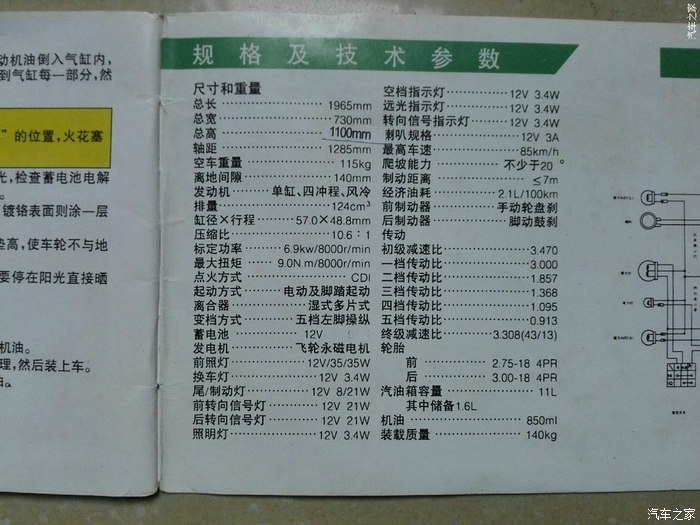 动机油倒入气缸内，
到气缸每一部分，然
”的位置，火花塞
光，检查蓄电池电解
镀铬表面则涂一层
垫高，使车轮不与地
要停在阳光直接晒
机油。
理，然后装上车。
规格及技术参数
尺寸和重量
总长 1965mm
总宽 730mm
总高 1100mm
轴距 1285mm
空车重量 115kg
离地间隙 140mm
发动机 单缸、四冲程、风冷
排量 124cm³
缸径×行程 57.0×48.8mm
压缩比 10.6：1
标定功率 6.9kw/8000r/min
最大扭矩 9.0N.m/8000r/min
点火方式 CDi
起动方式 电动及脚踏起动
离合器 湿式多片式
变档方式 五档左脚操纵
蓄电池 12V
发电机 飞轮永磁电机
前照灯 12V/35/35W
换车灯 12V 3.4W
尾/制动灯 12V 8/21W
前转向信号灯 12V 21W
后转向信号灯 12V 21W
照明灯 12V 3.4W
空档指示灯 12V 3.4W
远光指示灯 12V 3.4W
转向信号指示灯 12V 3.4W
喇叭规格 12V 3A
最高车速 85km/h
爬坡能力 不少于20°
制动距离 ≤7m
经济油耗 2.1L/100km
前制动器 手动轮盘刹
后制动器 脚动鼓刹
传动
初级减速比 3.470
一档传动比 3.000
二档传动比 1.857
三档传动比 1.368
四档传动比 1.095
五档传动比 0.913
终级减速比 3.308(43/13)
轮胎
前 2.75-18 4PR
后 3.00-18 4PR
汽油箱容量 11L
其中储备1.6L
机油 850ml
装载质量 140kg
汽车之家
汽车之家